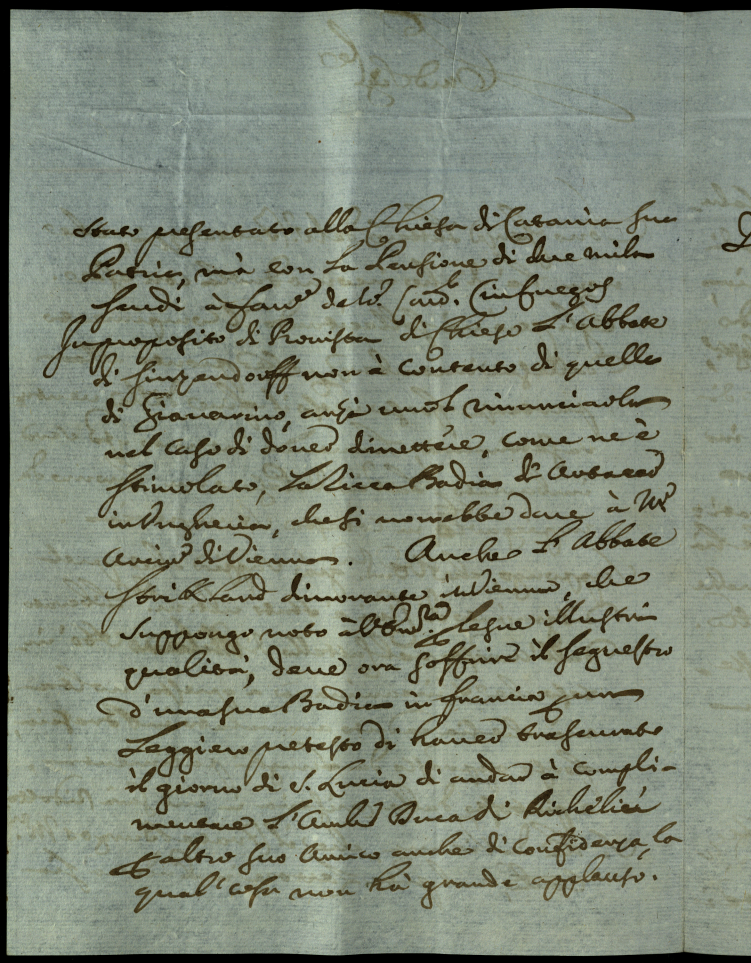 stato presentato alla Chiesa di Catania sua
Patria, mà con la Pensione di due mila
scudi à fav.re del S.r Card. Cinfuegos
In proposito di Provista di Chiese l'Abbate
di Sinzendorff non è contento di quella
di Giavarino, anzi vuol rinunciarla
nel caso di dover dimettere, come ne è
stimolato, la ricca Badia di
in Ungheria, che si vorrebbe dare à M.r
Arciv.o di Vienna. Anche l'Abbate
Strikland dimorante in Vienna, che
suppongo noto à per le sue illustri
qualità, deve ora soffrire il sequestro
d'una sua Badia in Francia per un
leggiero pretesto di haver trascurato
il giorno di S. Lucia di andar à compli-
mentare l'Amb.r Duca di Richelieù
per altro suo Amico anche di confidenza, la
qual cosa non hà grande applauso.